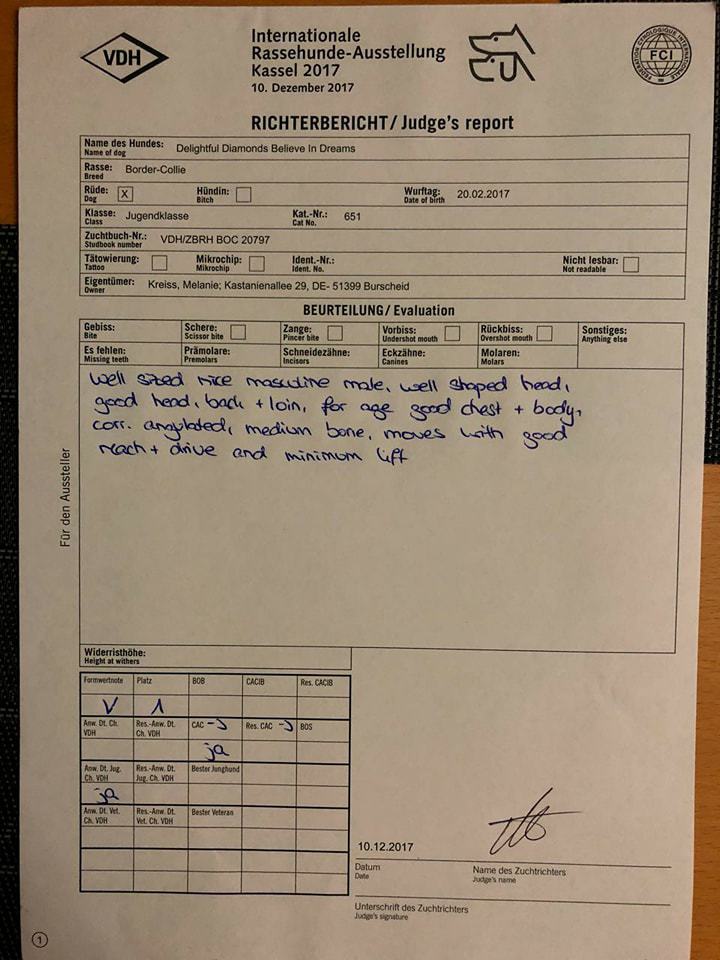 VDH
Internationale
Rassehunde-Ausstellung
Kassel 2017
10. Dezember 2017
FEDERATION CYNOLOGIQUE INTERNATIONALE
FCI
RICHTERBERICHT / Judge's report
Name des Hundes: Delightful Diamonds Believe In Dreams
Name of dog
Rasse: Border-Collie
Breed
Rüde: X Hündin: Wurftag: 20.02.2017
Dog Bitch Date of birth
Klasse: Jugendklasse Kat.-Nr.: 651
Class Cat No.
Zuchtbuch-Nr.: VDH/ZBRH BOC 20797
Studbook number
Tätowierung: Mikrochip: Ident.-Nr.: Nicht lesbar:
Tattoo Mikrochip Ident. No. Not readable
Eigentümer: Kreiss, Melanie; Kastanienallee 29, DE- 51399 Burscheid
Owner
BEURTEILUNG / Evaluation
Gebiss: Schere: Zange: Vorbiss: Rückbiss: Sonstiges:
Bite Scissor bite Pincer bite Undershot mouth Overshot mouth Anything else
Es fehlen: Prämolare: Schneidezähne: Eckzähne: Molaren:
Missing teeth Premolars Incisors Canines Molars
well sized nice masculine male, well shaped head,
good head, back + loin, for age good chest + body,
corr. angulated, medium bone, moves with good
reach + drive and minimum lift
Für den Aussteller
Widerristhöhe:
Height at withers
Formwertnote Platz BOB CACIB Res. CACIB
V 1
Anw. Dt. Ch. Res.-Anw. Dt. CAC -J Res. CAC -J BOS
VDH Ch. VDH
ja
Anw. Dt. Jug. Res.-Anw. Dt. Bester Junghund
Ch. VDH Jug. Ch. VDH
ja
Anw. Dt. Vet. Res.-Anw. Dt. Bester Veteran
Ch. VDH Vet. Ch. VDH
10.12.2017
Datum Name des Zuchtrichters
Date Judge's name
Unterschrift des Zuchtrichters
Judge's signature
1